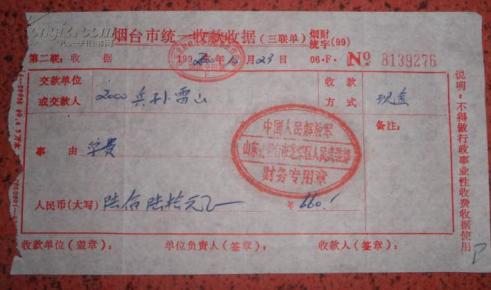 烟台市统一收款收据(三联单) 烟财统字(99)
第二联:收 据 2000年10月23日 06·F· № 8139276
交款单位或交款人 2000兵孙雷山 收款方式 现金
事 由 学费 备注:
中国人民解放军
人民武装部
财务专用章
人民币(大写) 陆佰陆拾元 ¥660.
收款单位(盖章): 单位负责人(签章): 收款人(签章):
说明:不得做行政事业性收费收据使用